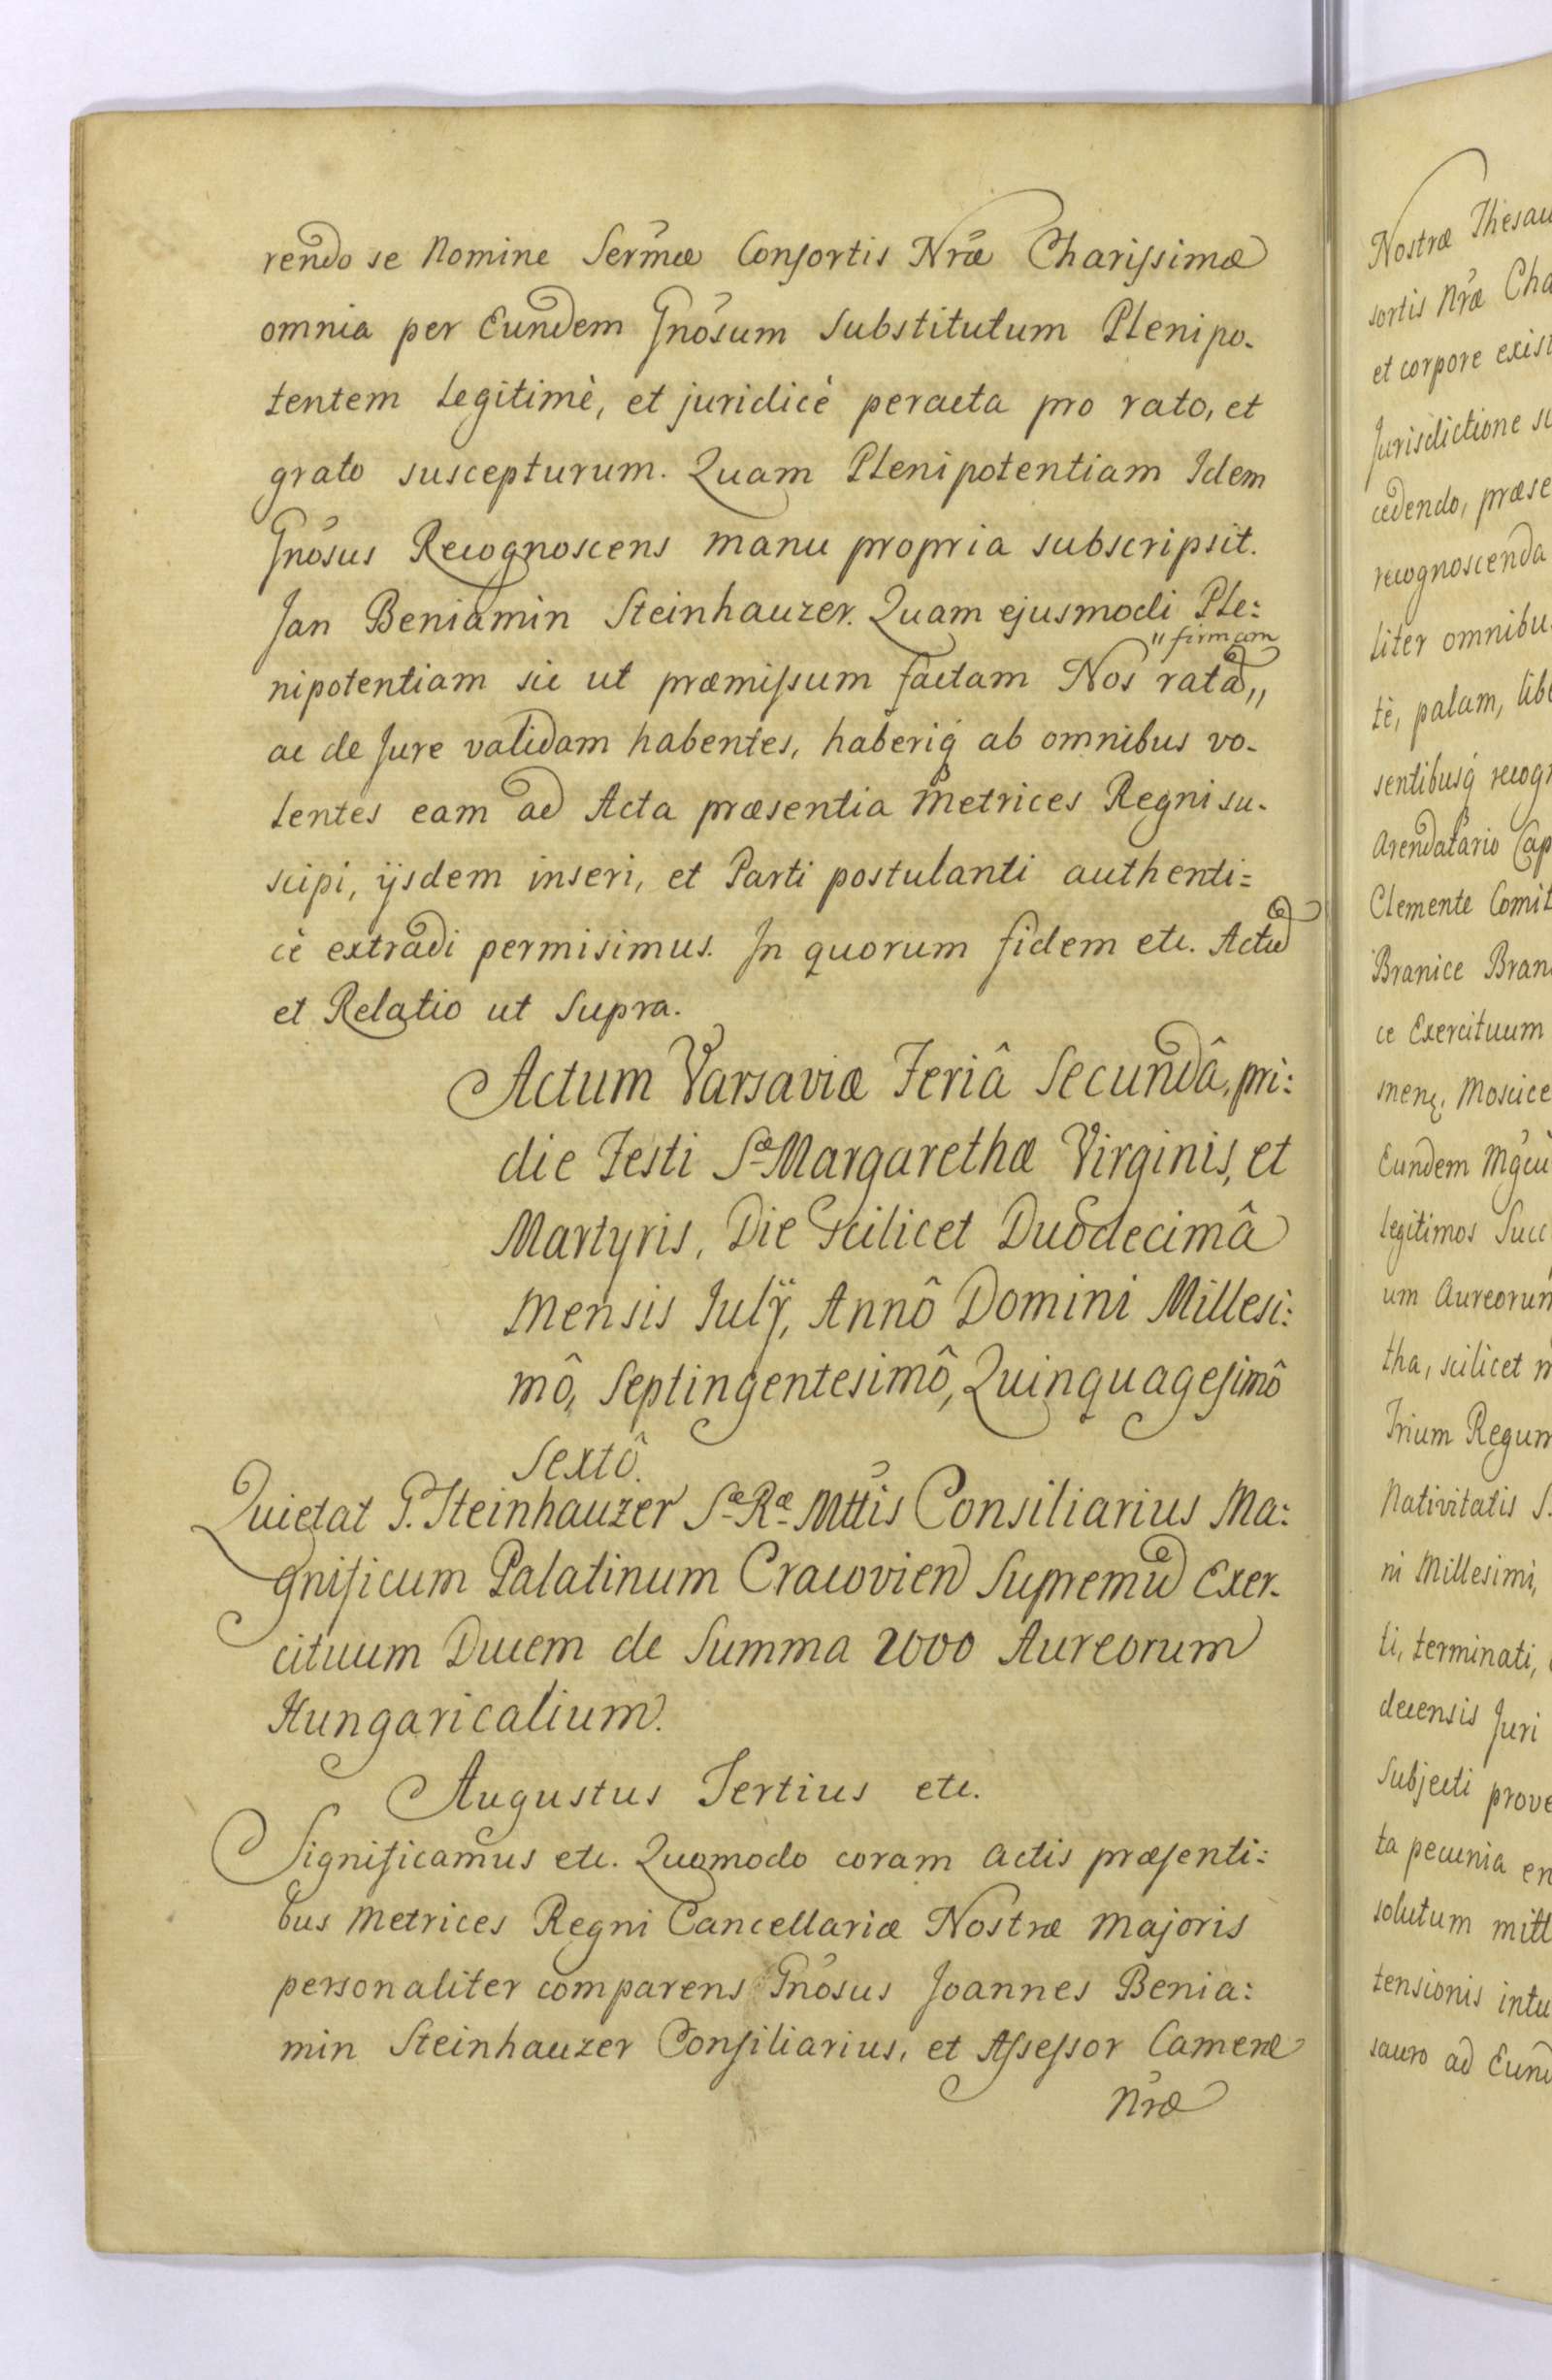 rendo se Nomine Sermæ Consortis Nræ Charissimæ
omnia per Eundem Gnosum Substitutum Plenipo-
tentem legitimè, et juridicè peracta pro rato, et
grato suscepturum. Quam Plenipotentiam Idem
Gnosus Recognoscens manu propria subscripsit.
Jan Beniamin Steinhauzer. Quam ejusmodi Ple:
" firmam
nipotentiam sic ut præmissum factam Nos ratã,,
ac de Jure validam habentes, haberiq́ ab omnibus vo-
lentes eam ad Acta præsentia Metrices Regni su-
scipi, ijsdem inseri, et Parti postulanti authenti=
cè extradi permisimus. In quorum fidem etc. Actũ
et Relatio ut Supra.
Actum Varsaviæ Feriâ Secundâ, pri:
die Festi Sæ Margarethæ Virginis, et
Martyris, Die Scilicet Duodecimâ
Mensis Julÿ, Annô Domini Millesi:
mô, Septingentesimô, Quinquagesimô
Sextô.
Quietat G. Steinhauzer Sæ Ræ Mttis Consiliarius Ma:
gnificum Palatinum Cracovien Supremũ Exer-
cituum Ducem de Summa 2000 Aureorum
Hungaricalium.
Augustus Tertius etc.
Significamus etc. Quomodo coram Actis præsenti:
bus Metrices Regni Cancellariæ Nostræ Majoris
personaliter comparens Gnosus Joannes Benia:
min Steinhauzer Consiliarius, et Assessor Cameræ
Nræ
Nostræ Thesau
sortis Nræ Cha
et corpore exist
Jurisdictione su
cedendo, præse
recognoscenda
liter omnibu
tè, palam, lib
sentibusq́ recog
Arendatario Cap
Clemente Comit
Branice Bran
ce Exercituum
men, Moscice
Eundem Mgcu
legitimos Succ
um Aureorum
tha, scilicet
Trium Regum
Nativitatis S.
ni Millesimi,
ti, terminati,
decensis Juri
Subjecti prove
ta pecunia en
solutum mitt
tensionis intu
sauro ad Eund